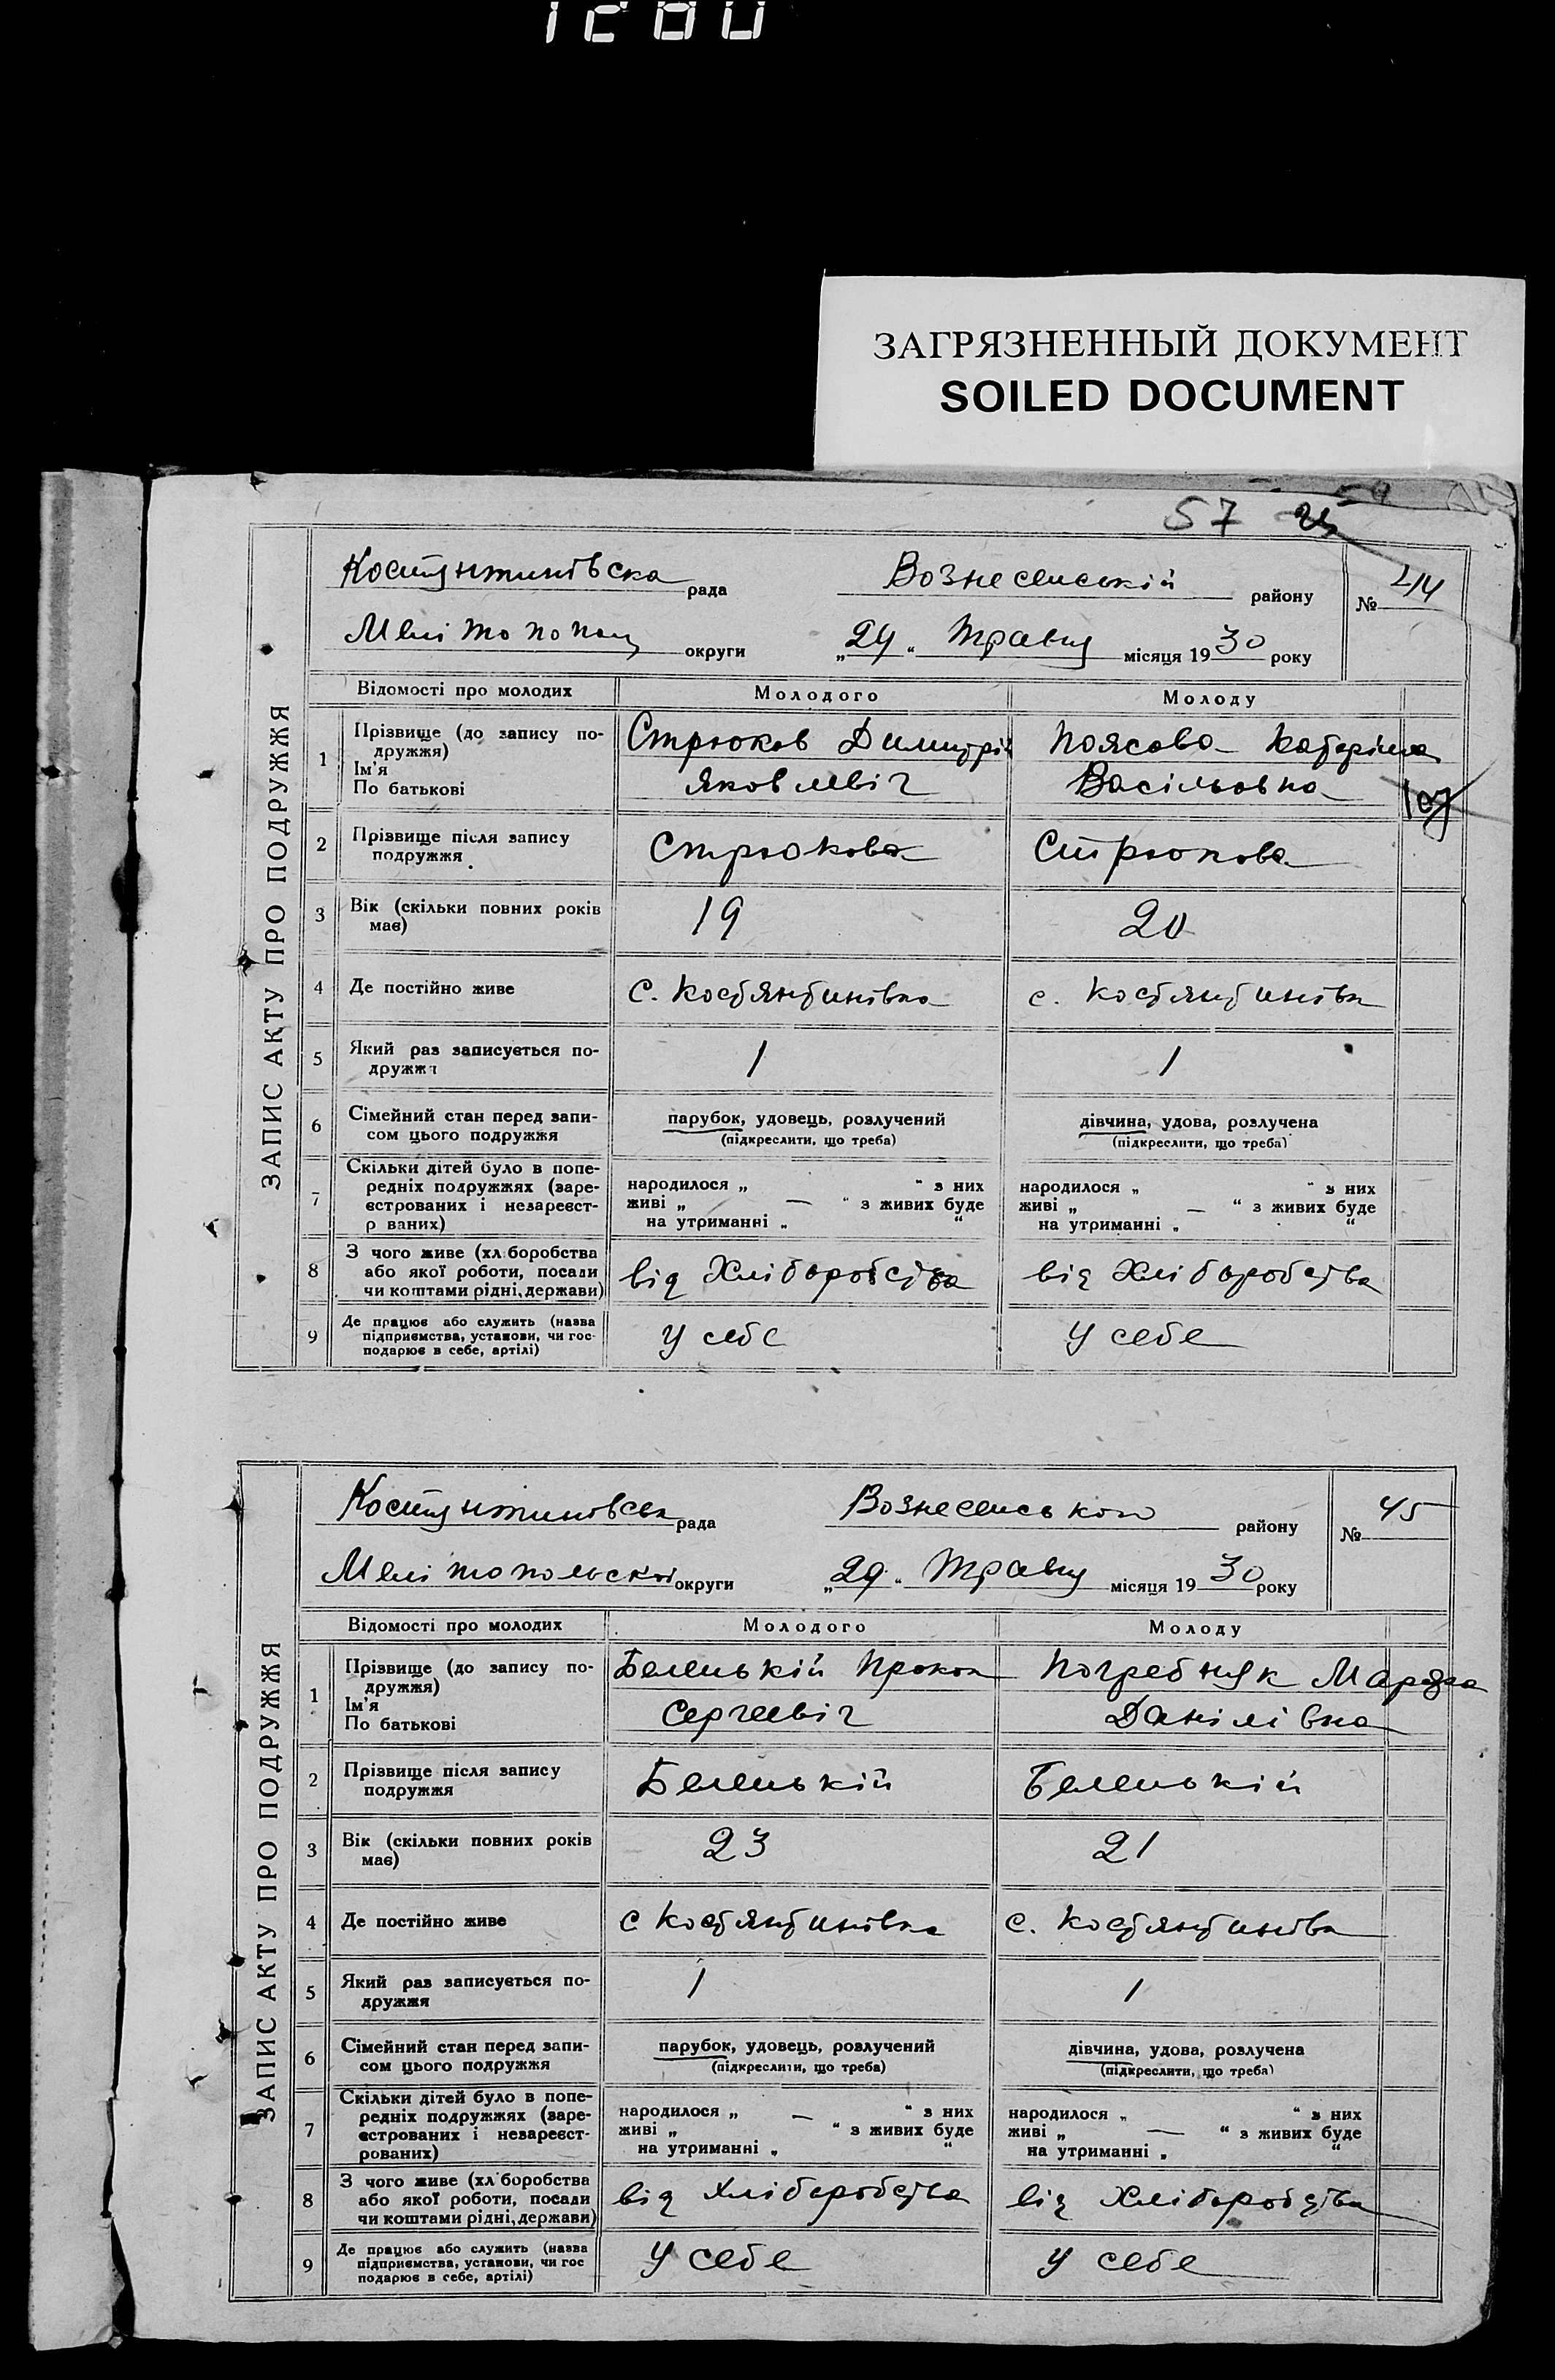 1280
ЗАГРЯЗНЕННЫЙ ДОКУМЕНТ
SOILED DOCUMENT
57
ЗАПИС АКТУ ПРО ПОДРУЖЖЯ
Костянтинівська рада Вознесенській району № 44
округи „29“ Травня місяця 1930 року
Відомості про молодих Молодого Молоду
1 Прізвище (до запису по-
дружжя)
Ім'я
По батькові
Стрюков Димитрій
Яковлевіч
Поясова Катеріна
Васільовна
107
2 Прізвище після запису
подружжя
Стрюкова Стрюкова
3 Вік (скільки повних років
має)
19 20
4 Де постійно живе с. Костянтинівка с. Костянтинівка
5 Який раз записується по-
дружжя
1 1
6 Сімейний стан перед запи-
сом цього подружжя
парубок, удовець, розлучений
(підкреслити, що треба)
дівчина, удова, розлучена
(підкреслити, що треба)
7 Скільки дітей було в попе-
редніх подружжях (заре-
єстрованих і незареєст-
р ваних)
народилося „ “ з них
живі „ — “ з живих буде
на утриманні „ “
народилося „ “ з них
живі „ — “ з живих буде
на утриманні „ “
8 З чого живе (хл боробства
або якої роботи, посади
чи коштами рідні, держави)
від Хліборобства від Хліборобства
9 Де працює або служить (назва
підприємства, установи, чи гос-
подарює в себе, артілі)
у себе у себе
ЗАПИС АКТУ ПРО ПОДРУЖЖЯ
Костянтинівська рада Вознесенського району № 45
Мелітопольскої округи „29“ Травня місяця 1930 року
Відомості про молодих Молодого Молоду
1 Прізвище (до запису по-
дружжя)
Ім'я
По батькові
Беленькій Прокоп
Сергеевіч
Погребняк
Данілівна
2 Прізвище після запису
подружжя
Беленькій Беленькій
3 Вік (скільки повних років
має)
23 21
4 Де постійно живе с Костянтинівка с. Костянтинівка
5 Який раз записується по-
дружжя
1 1
6 Сімейний стан перед запи-
сом цього подружжя
парубок, удовець, розлучений
(підкреслити, що треба)
дівчина, удова, розлучена
(підкреслити, що треба)
7 Скільки дітей було в попе-
редніх подружжях (заре-
єстрованих і незареєст-
рованих)
народилося „ — “ з них
живі „ “ з живих буде
на утриманні „ “
народилося „ “ з них
живі „ — “ з живих буде
на утриманні „ “
8 З чого живе (хл боробства
або якої роботи, посади
чи коштами рідні, держави)
від Хліборобства від Хліборобства
9 Де працює або служить (назва
підприємства, установи, чи гос
подарює в себе, артілі)
у себе у себе